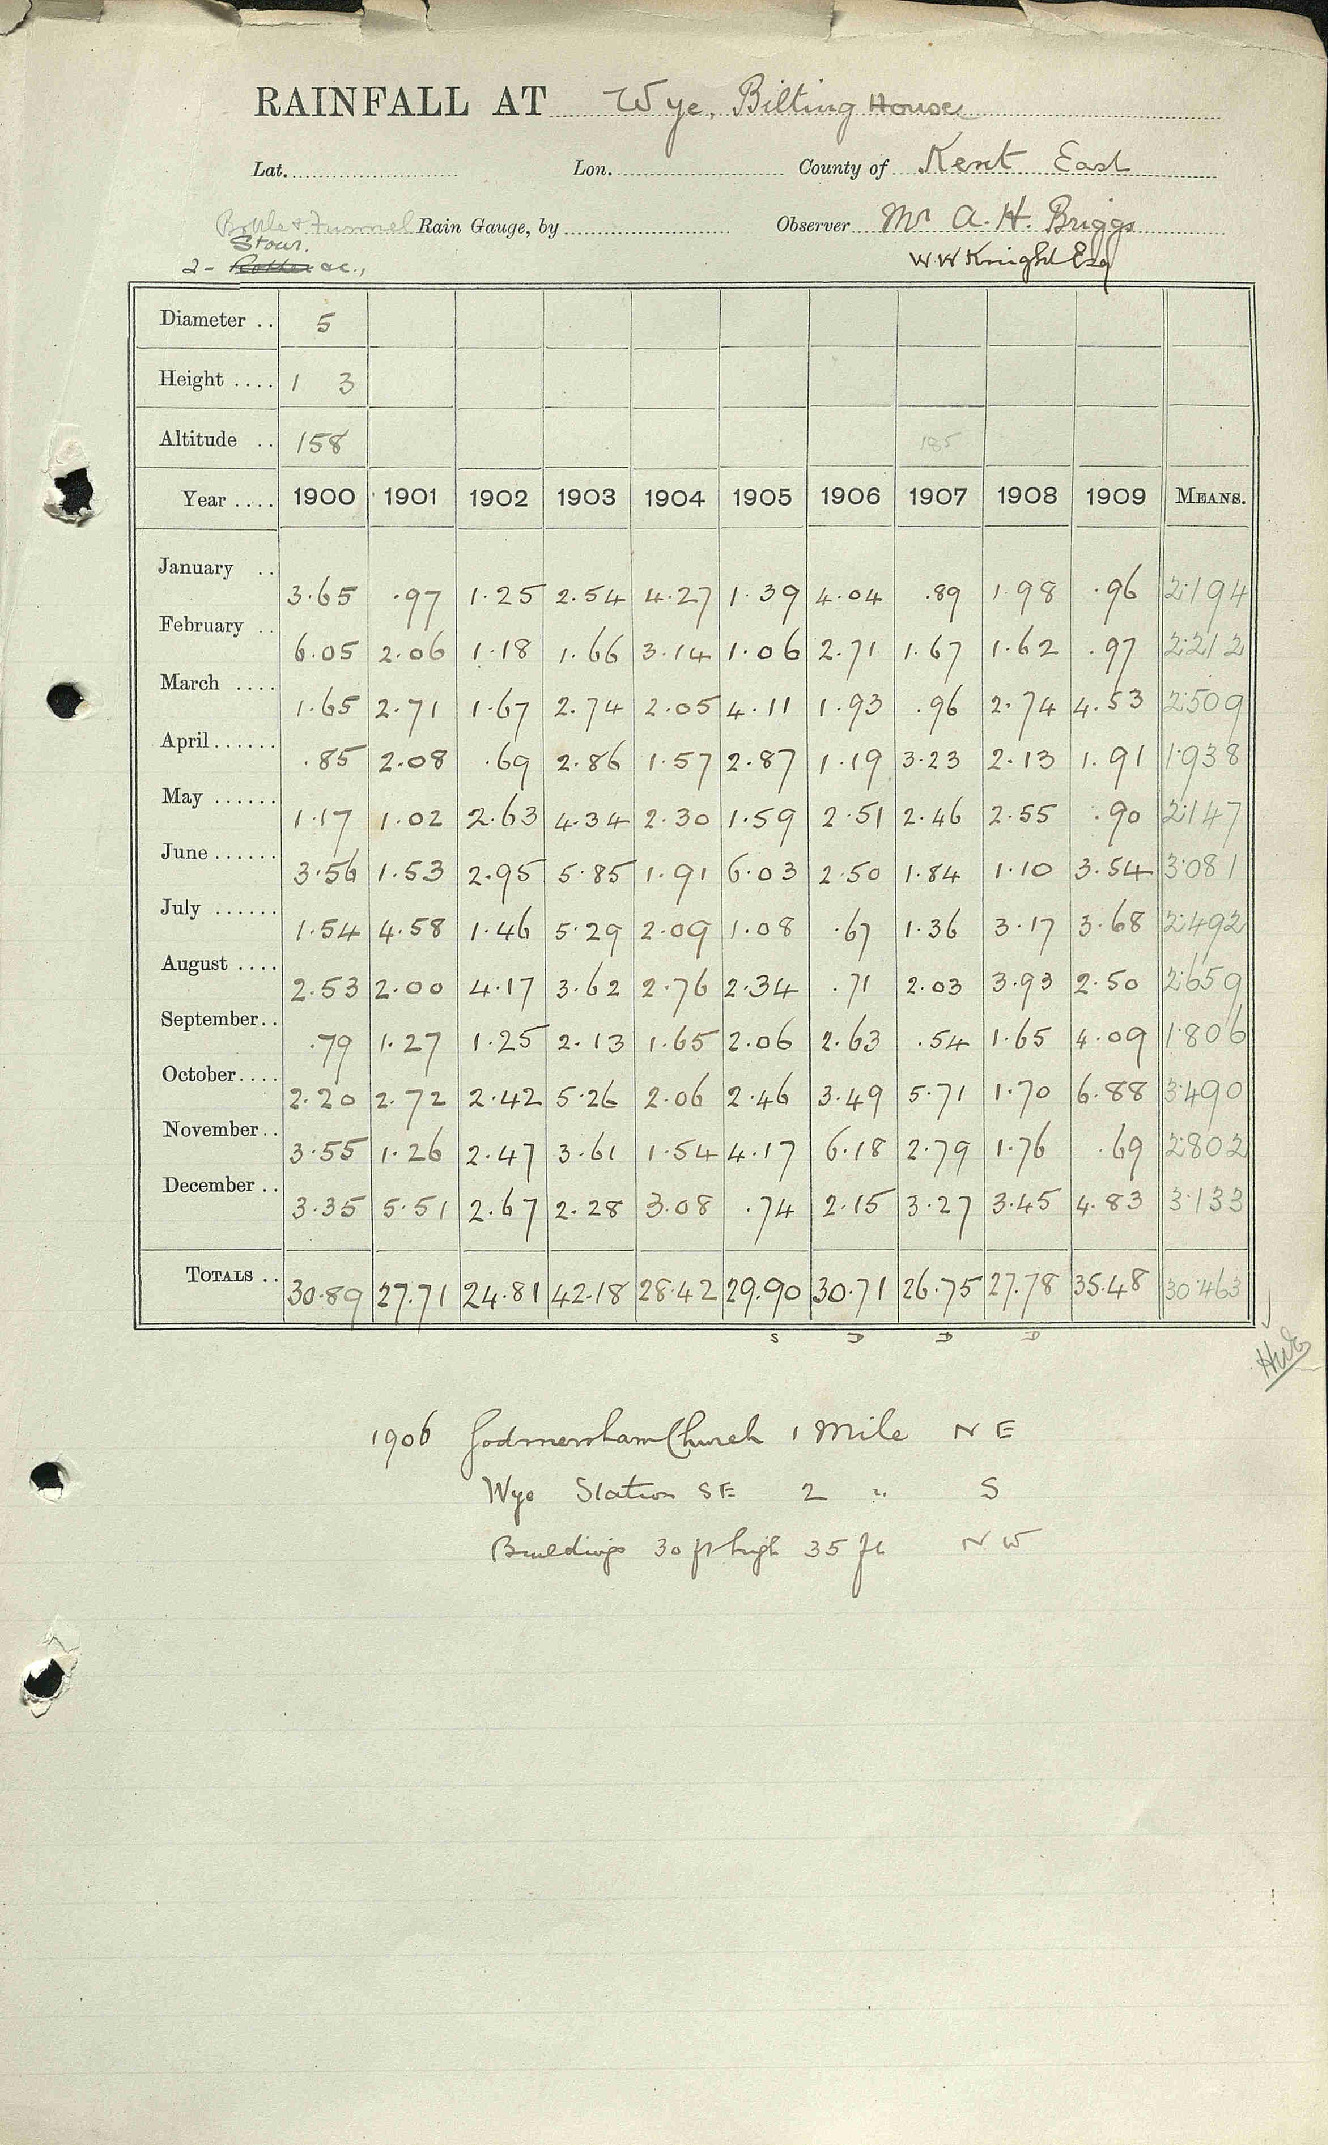 RAINFALL AT Wye, Bilting House
Lat. Lon. County of Kent East
Bottle & Funnel Rain Gauge, by Observer Mr A. H. Briggs
Stour.
2 - Rother &c., W W Knight Esq
Diameter .. 5
Height .... 1 3
Altitude .. 158 185
Year .... 1900 1901 1902 1903 1904 1905 1906 1907 1908 1909 MEANS.
January .. 3.65 .97 1.25 2.54 4.27 1.39 4.04 .89 1.98 .96 2.194
February .. 6.05 2.06 1.18 1.66 3.14 1.06 2.71 1.67 1.62 .97 2.212
March .... 1.65 2.71 1.67 2.74 2.05 4.11 1.93 .96 2.74 4.53 2.509
April ...... .85 2.08 .69 2.86 1.57 2.87 1.19 3.23 2.13 1.91 1.938
May ...... 1.17 1.02 2.63 4.34 2.30 1.59 2.51 2.46 2.55 .90 2.147
June ...... 3.56 1.53 2.95 5.85 1.91 6.03 2.50 1.84 1.10 3.54 3.081
July ...... 1.54 4.58 1.46 5.29 2.09 1.08 .67 1.36 3.17 3.68 2.492
August .... 2.53 2.00 4.17 3.62 2.76 2.34 .71 2.03 3.93 2.50 2.659
September .. .79 1.27 1.25 2.13 1.65 2.06 2.63 .54 1.65 4.09 1.806
October .... 2.20 2.72 2.42 5.26 2.06 2.46 3.49 5.71 1.70 6.88 3.490
November .. 3.55 1.26 2.47 3.61 1.54 4.17 6.18 2.79 1.76 .69 2.802
December .. 3.35 5.51 2.67 2.28 3.08 .74 2.15 3.27 3.45 4.83 3.133
TOTALS .. 30.89 27.71 24.81 42.18 28.42 29.90 30.71 26.75 27.78 35.48 30.463
S D D D
1906 Godmersham Church 1 Mile N E
Wye Station SE 2 " S
Buildings 30 ft high 35 ft N W